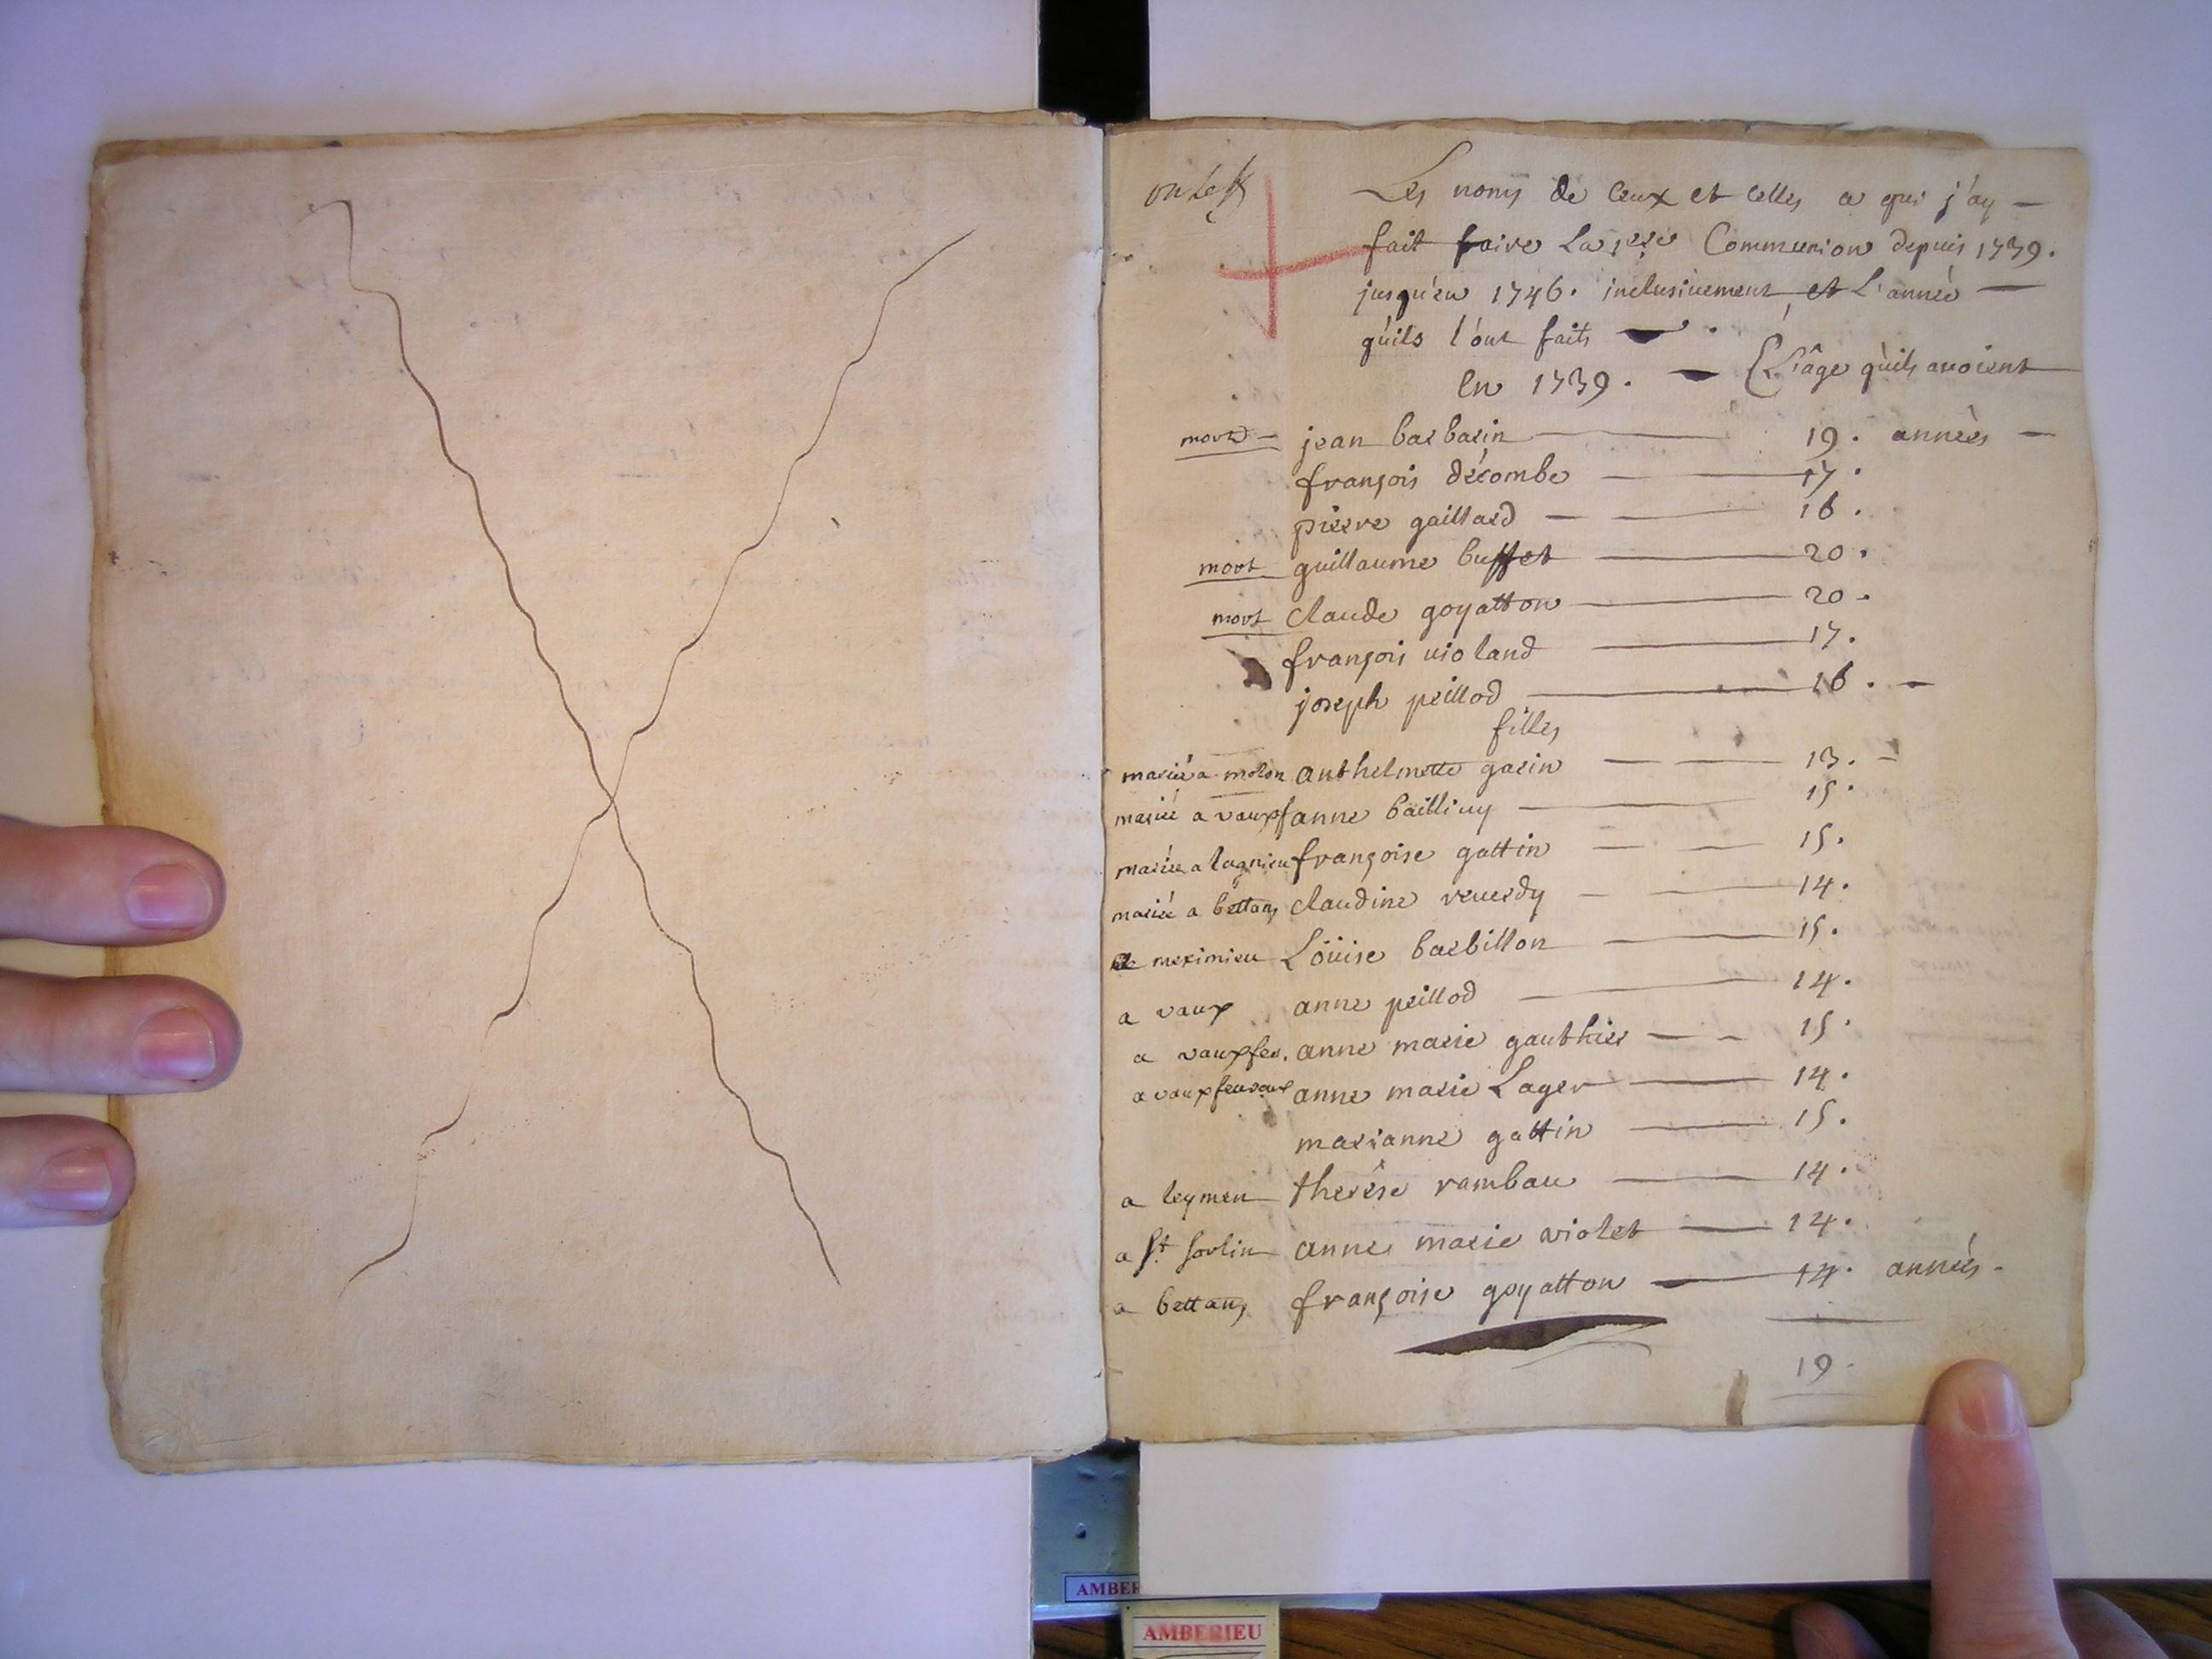 Les noms de ceux et celles a qui j'ay —
fait faire La 1ere Communion depuis 1739.
jusqu'en 1746. inclusivement et L'année —
qu'ils l'ont faits — .
en 1739. — { L'âge qu'ils avoient
mort — jean barbarin — 19. années —
françois décombe — 17.
pierre gaillard — 16.
mort guillaume buffet — 20.
mort claude goyatton — 20.
françois violand — 17.
joseph peillod — 16. —
filles
mariée a molon anthelmette garin — 13. —
mariée a vaux anne bailliuy — 15.
mariée a lagnieu françoise gattin — 15.
mariée a bettans claudine reverdy — 14.
a meximieu Löüise barbillon — 15.
a vaux anne peillod — 14.
a vauxfev. anne marie gauthier — 15.
a vauxfevroux anne marie Lager — 14.
marianne gattin — 15.
a leymen therêse rambau — 14.
a St sorlin anne marie violet — 14.
a bettans françoise goyatton — 14. années.
19.
AMBER
AMBERIEU